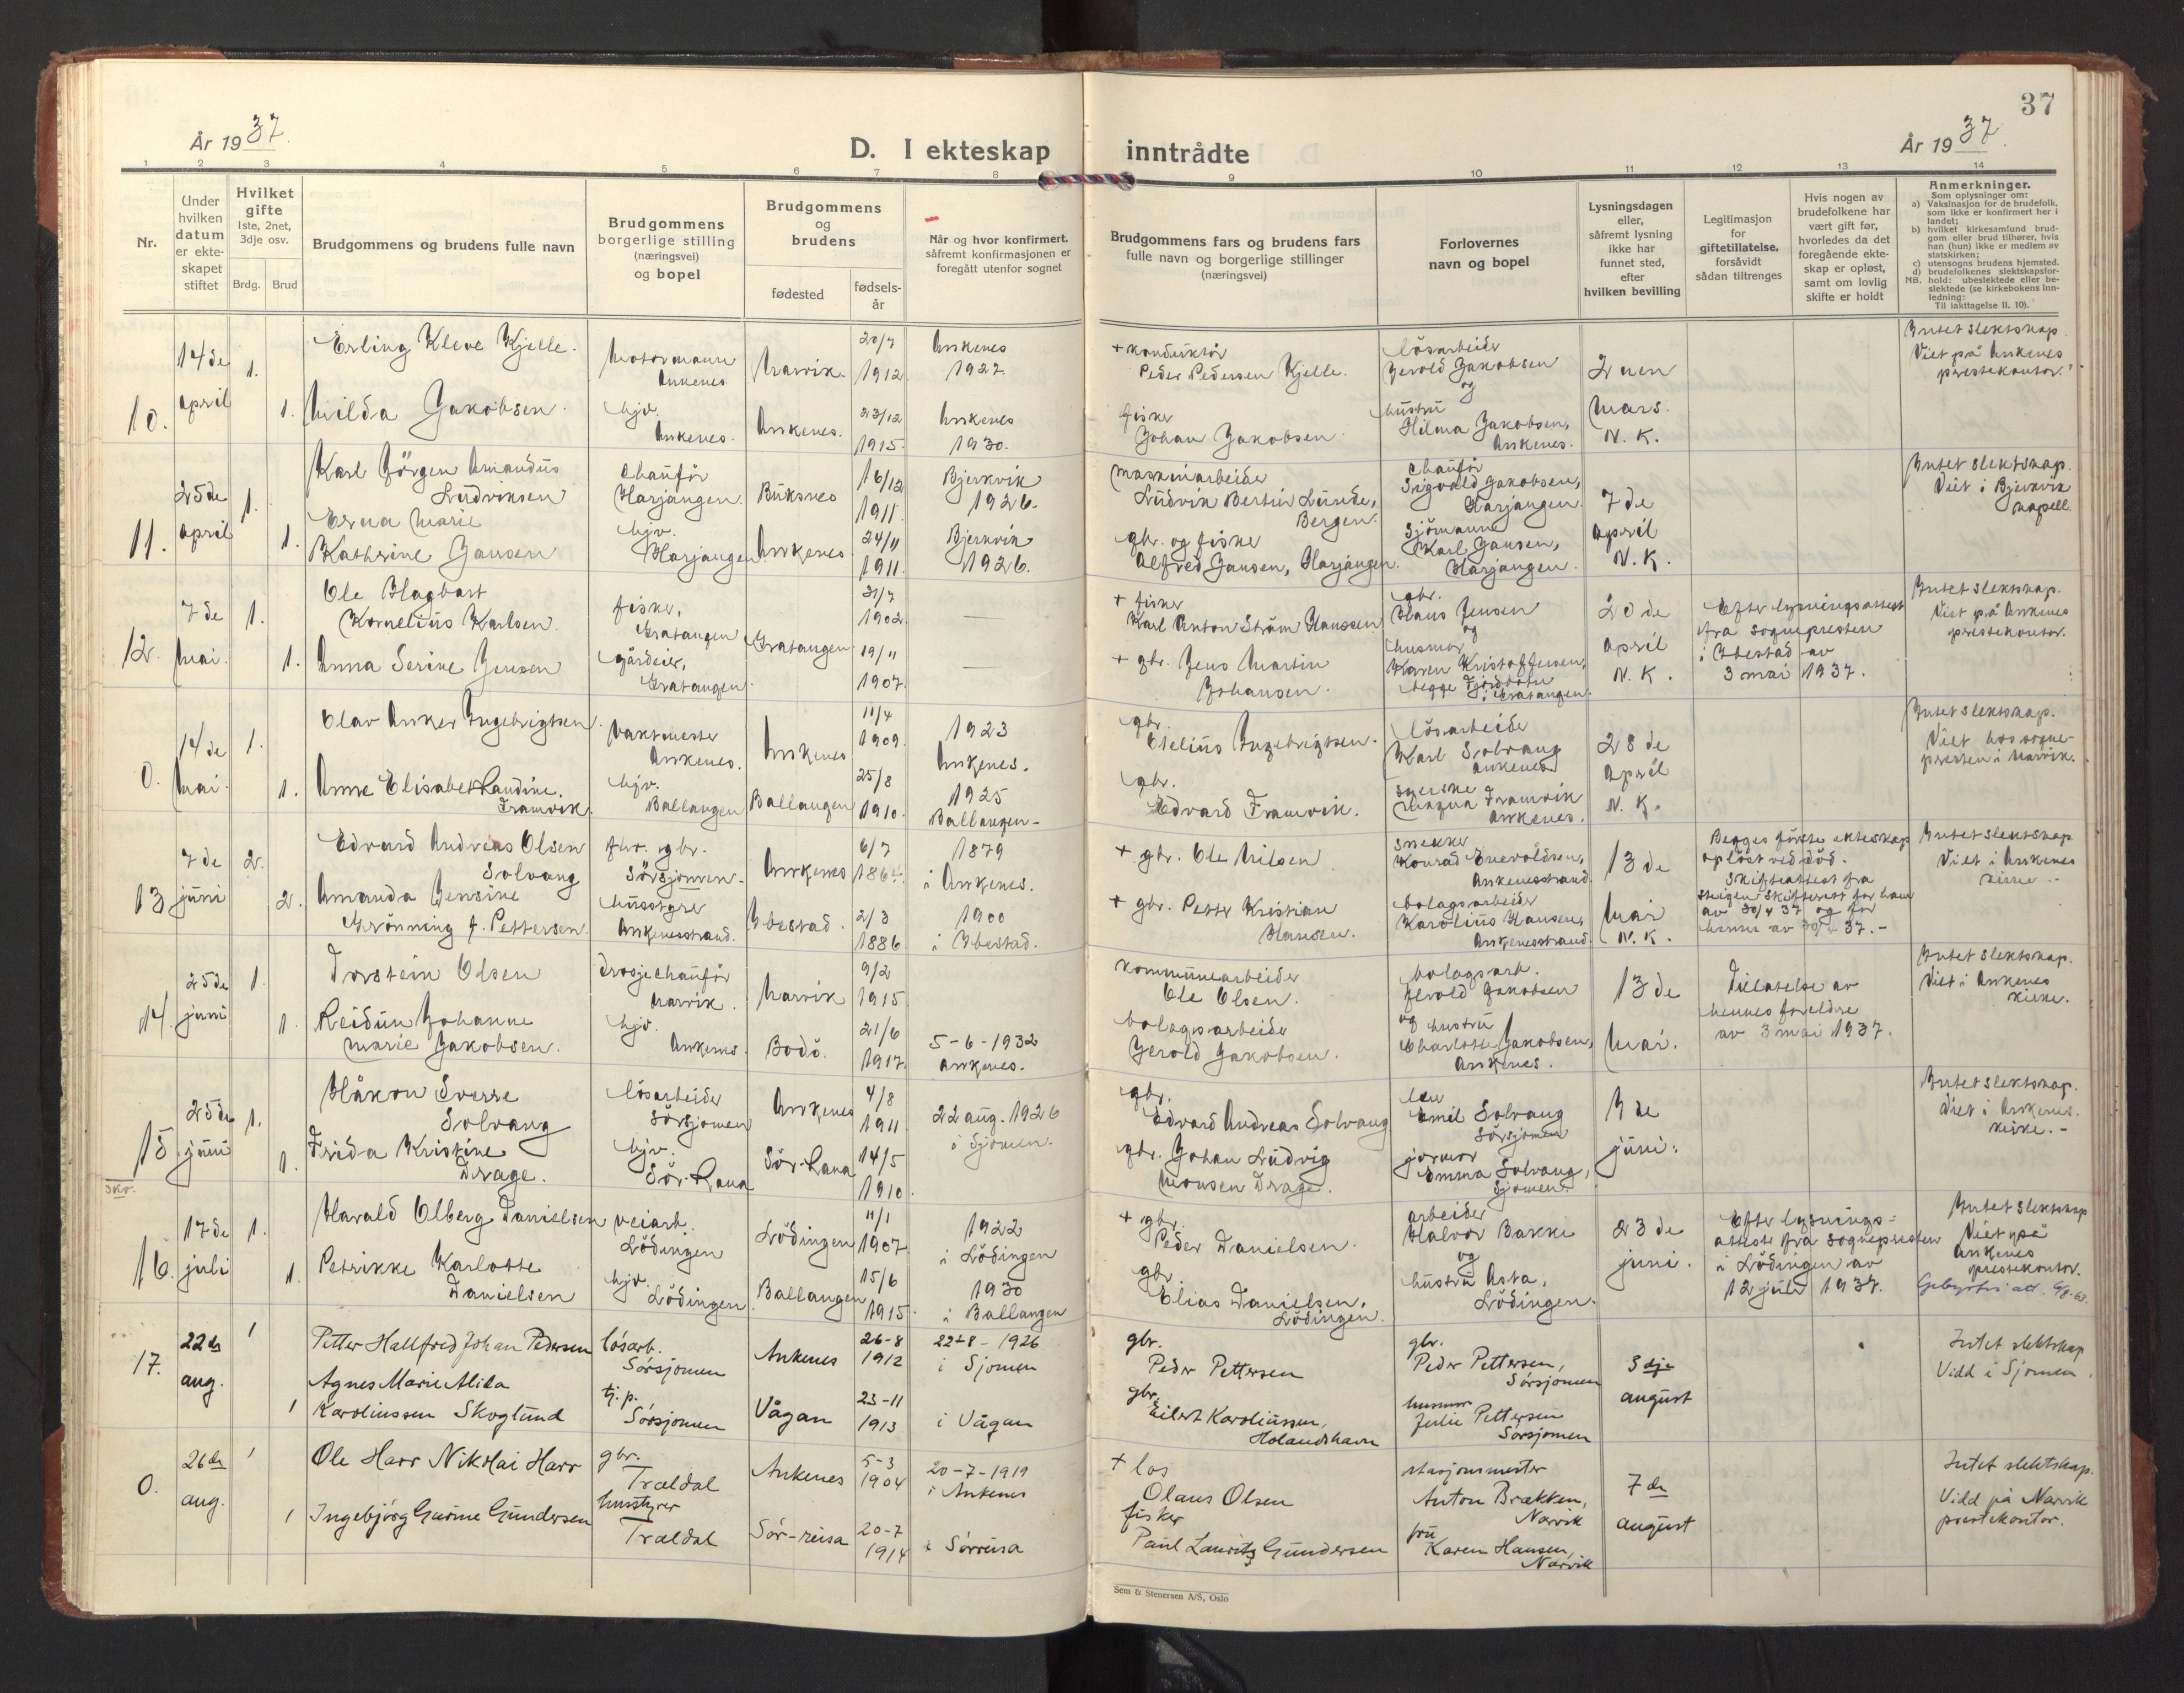 37
År 1937.
D. I ekteskap inntrådte
År 1937.
1 2 3 4 5 6 7 8 9 10 11 12 13 14
Nr.
Under hvilken datum er ekteskapet stiftet
Hvilket gifte
1ste, 2net, 3dje osv.
Brdg. Brud
Brudgommens og brudens fulle navn
Brudgommens borgerlige stilling (næringsvei) og bopel
Brudgommens og brudens
fødested
fødsels-år
Når og hvor konfirmert. såfremt konfirmasjonen er foregått utenfor sognet
Brudgommens fars og brudens fars fulle navn og borgerlige stillinger (næringsvei)
Forlovernes navn og bopel
Lysningsdagen eller, såfremt lysning ikke har funnet sted, efter hvilken bevilling
Legitimasjon for giftetillatelse. forsåvidt sådan tiltrenges
Hvis nogen av brudefolkene har vært gift før, hvorledes da det foregående ekteskap er opløst, samt om lovlig skifte er holdt
Anmerkninger.
Som oplysninger om:
a) Vaksinasjon for de brudefolk, som ikke er konfirmert her i landet;
b) hvilket kirkesamfund brudgom eller brud tilhører, hvis han (hun) ikke er medlem av statskirken;
c) utensogns brudens hjemsted.
d) brudefolkenes slektskapsforhold: ubeslektede eller beslektede (se kirkebokens innledning:
NB. Til iakttagelse II. 10).
10. 14de april 1. 1.
Erling Kleve Kjelle.
Motormann Ankenes
Narvik. 20/7 1912
Ankenes 1927.
+ konduktør Peder Pedersen Kjelle.
løsarbeider Jerold Jakobsen og
hustru Hilma Jakobsen, Ankenes.
2nen Mars. N. K.
Intet slektskap. Viet på Ankenes prestekontor.
Milda Jakobsen.
hjv. Ankenes.
Ankenes. 23/12 1915.
Ankenes 1930.
fisker Johan Jakobsen
11. 25de april 1. 1.
Karl Jörgen Amandus Ludviksen
Chauför Harjangen.
Buksnes 16/12 1911.
Bjerkvik 1926.
Maskinarbeider Ludvik Bertin Lunde, Bergen.
Chauför Sigvald Jakobsen, Harjangen.
7de april N. K.
Intet slektskap. Viet i Bjerkvik kapell.
Erna Marie Kathrine Jansen
hjv. Harjangen
Ankenes 24/11 1911.
Bjerkvik 1926.
gbr. og fisker Alfred Jansen, Harjangen.
Sjömann Karl Jansen, Harjangen.
12. 7de Mai. 1. 1.
Ole Hagbart Kornelius Karlsen.
fisker, Gratangen
Gratangen 31/7 1902 —
+ fisker Karl Anton Ström Hanssen
gbr. Hans Jensen og
husmor Karen Kristoffersen, begge Fjordbotn i Gratangen.
20de april N. K.
Efter lysningsattest fra sognepresten i Ibestad av 3 mai 1937.
Intet slektskap. Viet på Ankenes prestekontor.
Anna Serine Jensen
gårdeier, Gratangen.
19/11 1907. —
+ gbr. Jens Martin Johansen.
0. 14de Mai. 1. 1.
Olav Anker Ingebrigtsen.
Vaktmester Ankenes.
Ankenes 11/4 1909.
1923 Ankenes.
gbr. Otelius Ingebrigtsen.
løsarbeider Karl Solvang Ankenes
28de April N. K.
Intet slektskap. Viet hos sognepresten i Narvik.
Anne Elisabet Landine Framvik.
hjv. Ballangen
Ballangen 25/8 1910.
1925 Ballangen-
gbr. Edvard Framvik.
Magna Framvik Ankenes.
13 7de juni 2. 2.
Edvard Andreas Olsen Solvang
fhv. gbr. Sörsjomen.
Ankenes 6/7 1864.
1879 i Ankenes.
+ gbr. Ole Nilsen
snekker Konrad Enevoldsen, Ankenesstrand.
13de Mai N. K.
Begges förste ekteskap oplöst ved död. Skifteattest fra Steigen skifterett for ham av 30/4 37 og for henne av 30/4 37.-
Intet slektskap Viet i Ankenes kirke.-
Amanda Jensine Grönning f. Pettersen.
husstyrer Ankenesstrand.
Ibestad. 2/3 1886
1900 i Ibestad.
+ gbr. Petter Kristian Hansen.
bolagsarbeider Karolius Hansen, Ankenesstrand
14. 25de juni 1. 1.
Torstein Olsen
Drosjechauför Narvik.
Narvik 9/2 1915
kommunearbeider Ole Olsen.
bolagsarb. Jerold Jakobsen
og hustru Charlotte Jakobsen, Ankenes.
13de Mai.
Tillatelse av hennes foreldre av 3 mai 1937.
Intet slektskap. Viet i Ankenes kirke.
Reidun Johanne Marie Jakobsen.
hjv. Ankenes.
Bodö. 21/6 1917.
5-6-1932 Ankenes.
bolagsarbeider Jerold Jakobsen.
15 25de juni 1. 1.
Skr.
Håkon Sverre Solvang
løsarbeider Sörsjomen
Ankenes 4/8 1911
22 aug. 1926 i Sjomen.
gbr. Edvard Andreas Solvang
Emil Solvang Sörsjomen
3de juni.
Intet slektskap. Viet i Ankenes kirke.-
Frida Kristine Drage.
hjv. Sör-Rana
Sör-Rana 14/5 1910.
gbr. Johan Ludvig Monsen Drage.
jormor Emma Solvang, Sjomen.
16. 17de juli 1. 1.
Harald Olberg Danielsen
veiarb. Lödingen
Lödingen 11/1 1907.
1922 i Lödingen
+ gbr. Peder Danielsen.
arbeider Halvor Bakke og
hustru Asta, Lödingen.
23de juni.
Efter lysningsatteste fra sognepresten i Lödingen av 12 juli 1937.
Intet slektskap Viet på Ankenes prestekontor.
Gebyrfri att. 6/8-63.
Petrikke Karlotte Danielsen
hjv. Lödingen
Ballangen 15/6 1915.
1930 i Ballangen
gbr Elias Danielsen, Lödingen.
17. 22de aug. 1 1
Petter Hallfred Johan Pedersen
løsarb. Sørsjomen
Ankenes 26-8 1912
22-8-1926 i Sjomen
gbr. Peder Pettersen
gbr. Peder Pettersen, Sørsjomen
3dje august
Intet slektskap Vidd i Sjomen.
Agnes Marie Alida Karoliussen Skoglund
tj. p. Sørsjomen
Vågan 23-11 1913
i Vågan
gbr. Eilert Karoliussen, Holandshavn
husmor Julie Pettersen Sørsjomen
0. 26de aug. 1 1
Ole Harr Nikolai Harr
gbr. Traldal
Ankenes 5-3 1904
20-7-1919 i Ankenes
+ los Olaus Olsen
stasjonsmester Anton Brækken, Narvik
7de august
Intet slektskap. Vidd på Narvik prestekontor.
Ingebjörg Gurine Gundersen
husstyrer Traldal
Sør-reisa 20-7 1914
i Sørreisa
fisker Paul Lauritz Gundersen
fru Karen Hansen, Narvik
Sem & Stenersen A/S, Oslo